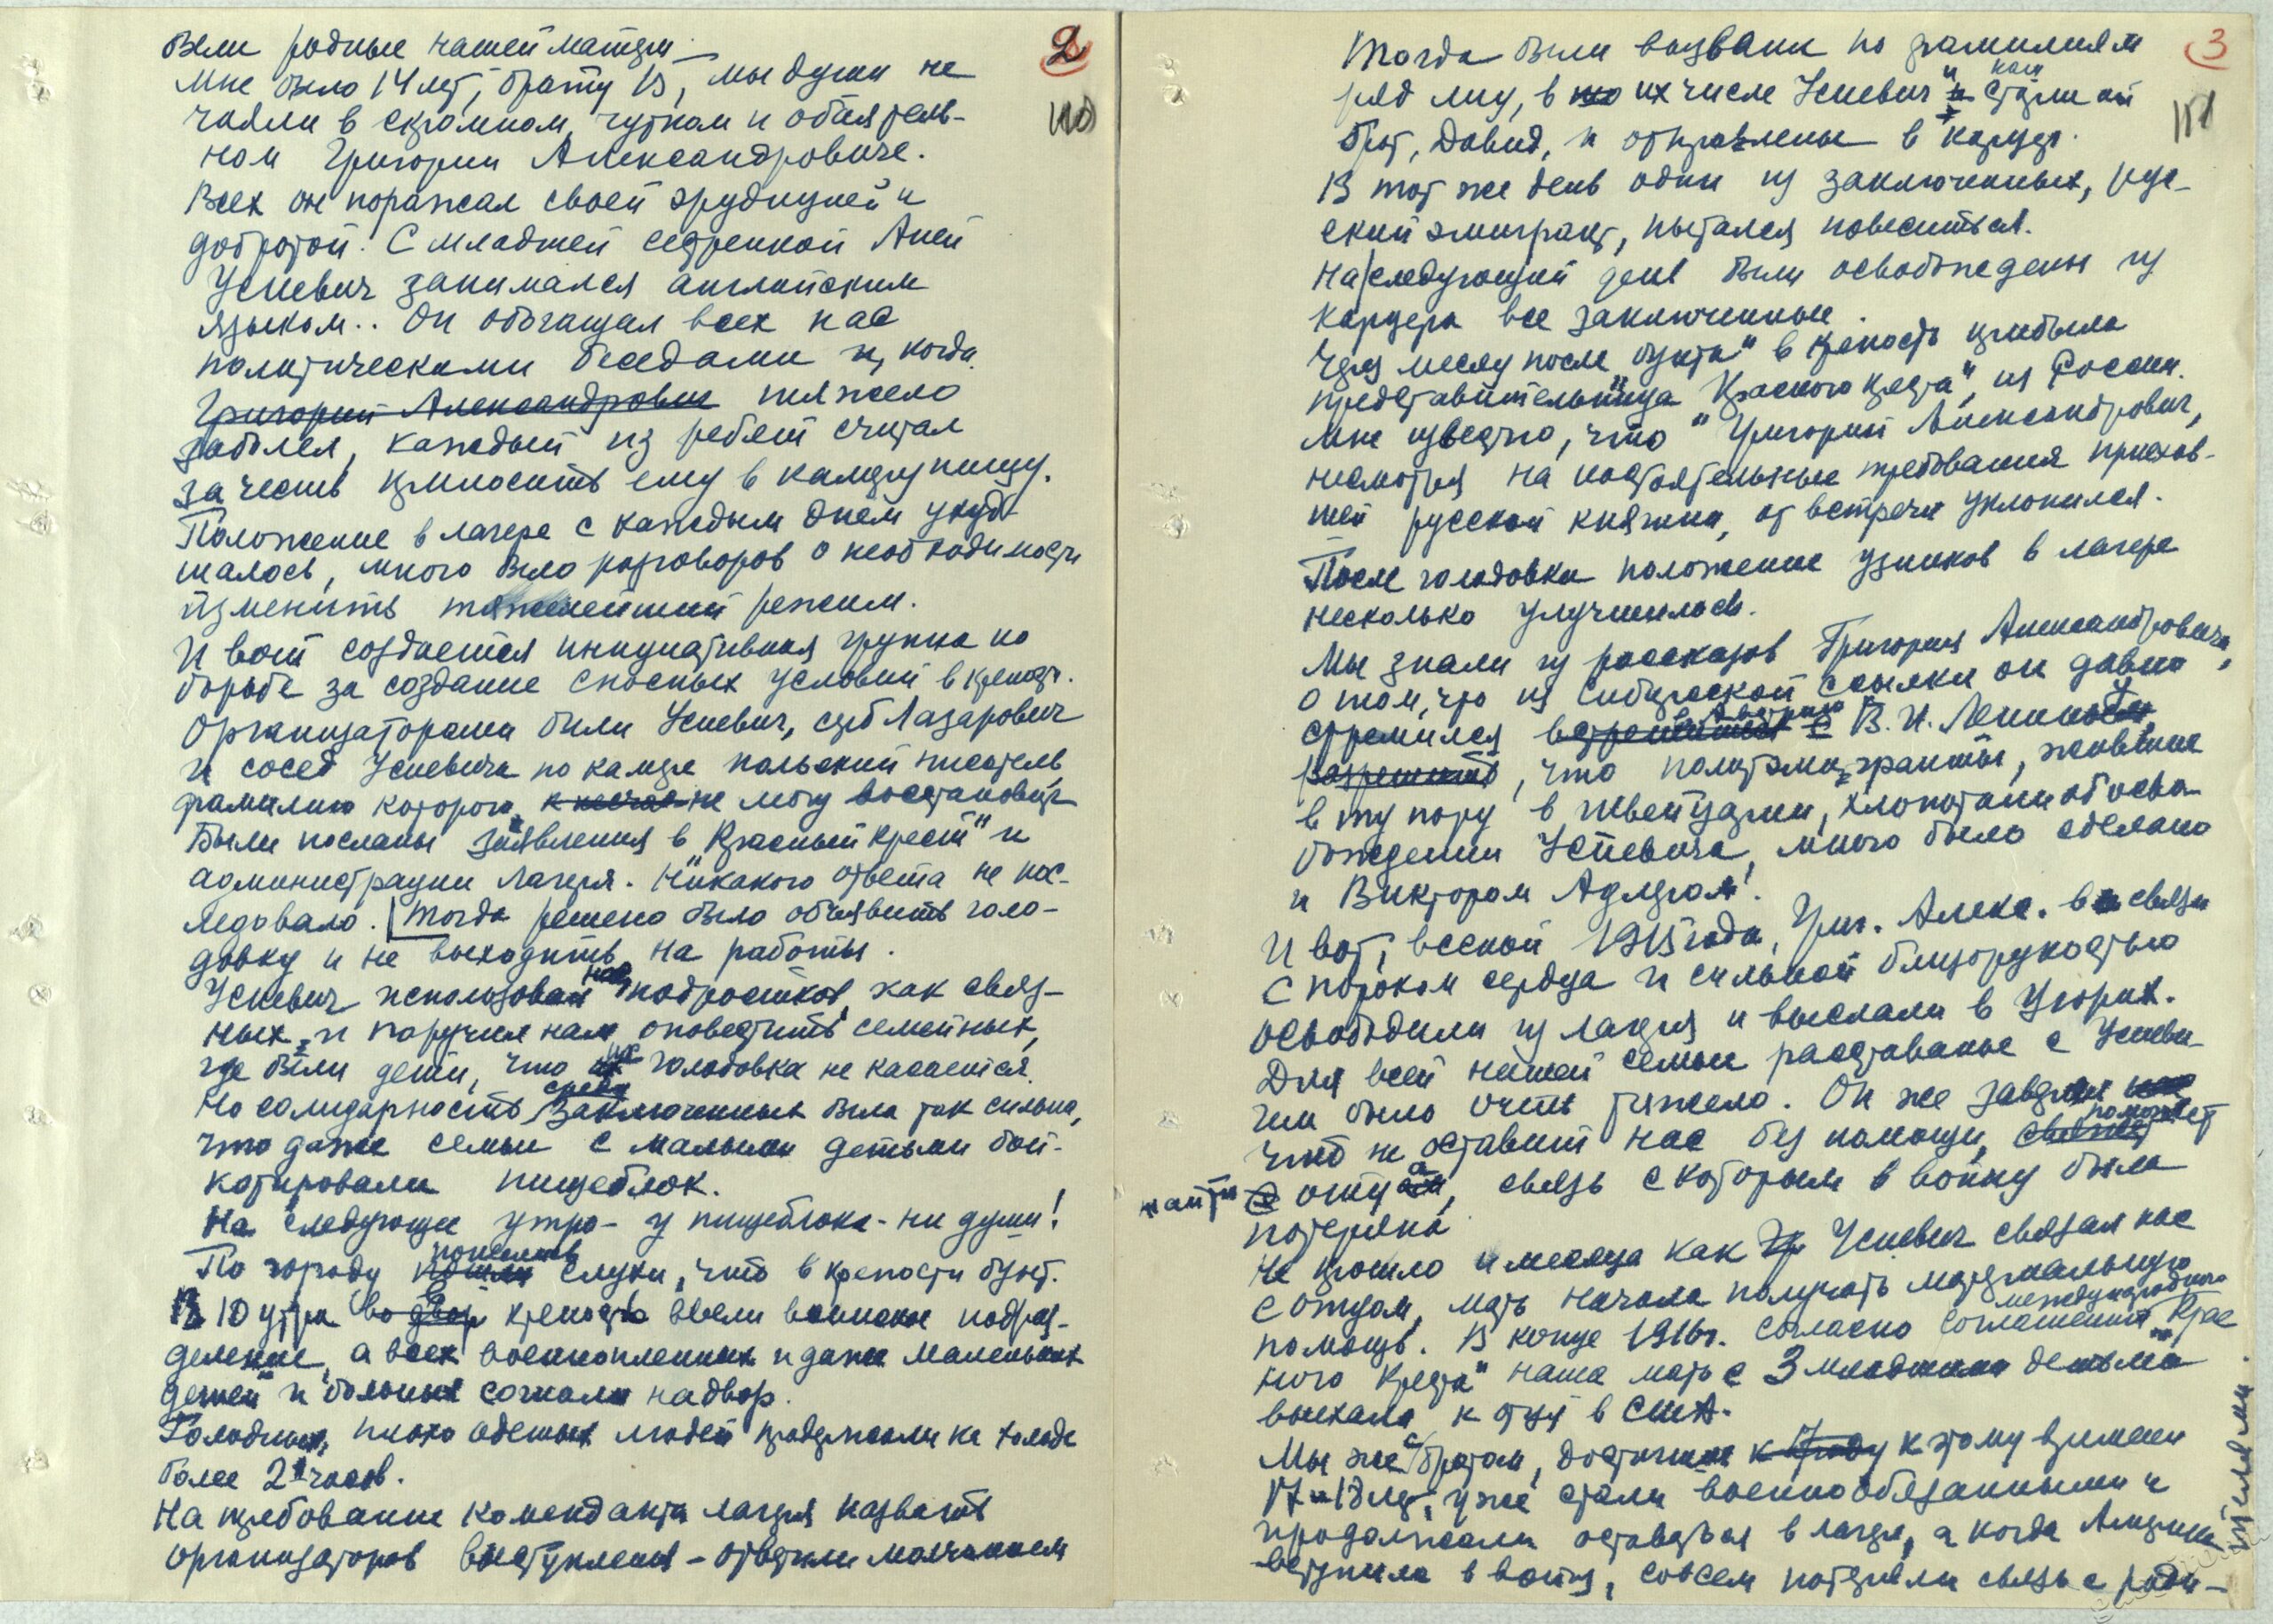 2
были родные нашей матери.
Мне было 14 лет, брату 13, мы души не
чаяли в скромном, чутком и обаятель-
ном Григории Александровиче.
Всех он поражал своей эрудицией и
добротой. С младшей сестренкой Аней
Усиевич занимался английским
языком.. Он обогащал всех нас
политическими беседами и, когда
Григорий Александрович тяжело
заболел, каждый из ребят считал
за честь приносить ему в камеру пищу.
Положение в лагере с каждым днем ухуд-
шалось, много было разговоров о необходимости
изменить тяжелейший режим.
И вот создается инициативная группа по
борьбе за создание сносных условий в крепости.
Организаторами были Усиевич, серб Лазарович
и сосед Усиевича по камере польский писатель,
фамилию которого не могу восстановить
Были посланы заявления в "Красный крест" и
администрации лагеря. Никакого ответа не пос-
ледовало. Тогда решено было объявить голо-
довку и не выходить на работы.
Усиевич использовал нас, подростков, как связ-
ных и поручил нам оповестить семейных,
где были дети, что их голодовка не касается.
Но солидарность среди заключенных была так сильна,
что даже семьи с малыми детьми бой-
котировали пищеблок.
На следующее утро - у пищеблока - ни души!
По городу пошли слухи, что в крепости бунт.
В 10 утра во двор крепости ввели воинское подраз-
деление, а всех военнопленных и даже маленьких
детей и больных согнали на двор.
Голодных, плохо одетых людей продержали на холоде
более 2 часов.
На требование коменданта лагеря назвать
организаторов выступления - ответили молчанием
3
151
Тогда были вызваны по фамилиям
ряд лиц, в их числе Усиевич и наш старший
брат, Давид, и отправлены в карцер.
В тот же день один из заключенных, рус-
ский эмигрант, пытался повеситься.
На следующий день были освобождены из
карцера все заключенные.
Через месяц после "бунта" в крепость прибыла
представительница "Красного креста", из России.
Мне известно, что Григорий Александрович,
несмотря на настоятельные требования приехав-
шей русской княжны, от встречи уклонился.
После голодовки положение узников в лагере
несколько улучшилось.
Мы знали из рассказов Григория Александровича,
о том, что из Сибирской ссылки он давно
стремился встретиться с В. И. Лениным
разрешить, что политэмигранты, жившие
в ту пору в Швейцарии, хлопотали об осво-
бождении Усиевича, много было сделано
и Виктором Адлером!
И вот, весной 1915 года, Григ. Алекс. в связи
с пороком сердца и сильной близорукостью
освободили из лагеря и выслали в Цюрих.
Для всей нашей семьи расставанье с Усиеви-
чем было очень тяжело. Он же заверил нас
что не оставит нас без помощи, поможет
найти отца, связь с которым в войну была
потеряна
Не прошло и месяца как Усиевич связал нас
с отцом, мать начала получать материальную
помощь. В конце 1916 г. согласно соглашения международного "Крас
ного креста" наша мать с 3 младшими детьми
выехала к отцу в США.
Мы же с братом, достигшие к этому времени
17-18 лет, уже стали военнообязанными и
продолжали оставаться в лагере, а когда Америка
вступила в войну, совсем потеряли связь с роди-
телями.